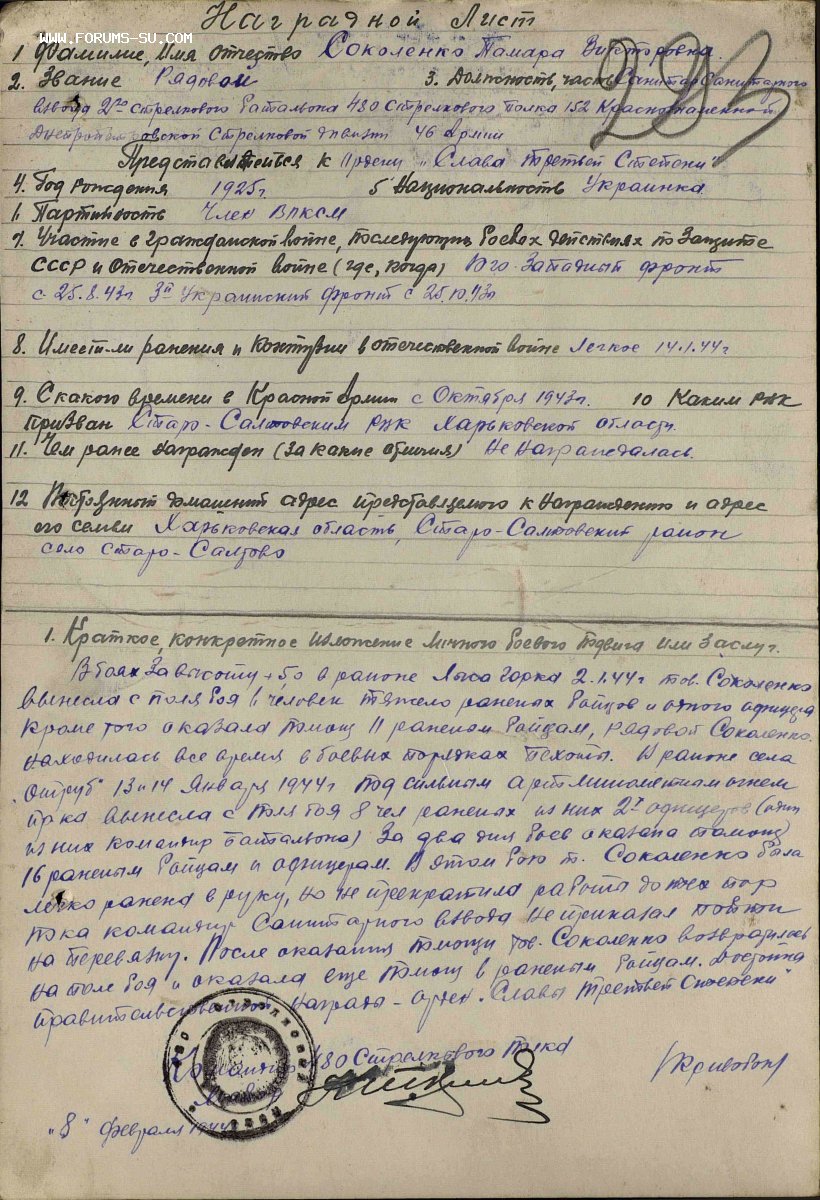 WWW.FORUMS-SU.COM
Наградной Лист
1 Фамилие, Имя Отчество Соколенко Тамара Викторовна
2. Звание Рядовой 3. Должность, часть Санитар санитарного
взвода 2го стрелкового батальона 480 стрелкового полка 152 Краснознаменной
Днепропетровской стрелковой дивизии 46 Армии
Представляеться к Ордену "Слава третьей Степени"
4. Год рождения 1925г. 5 Национальность Украинка
6. Партийность Член ВЛКСМ
7. Участие в гражданской войне, последующих боевых действиях по защите
СССР и Отечественной войне (где, когда) Юго-Западный фронт
с 25.8.43г 3й Украинский фронт с 25.10.43г
8. Имеет-ли ранения и контузии в отечественной войне Легкое 14.1.44г
9. С какого времени в Красной Армии с Октября 1943г. 10 Каким РВК
призван Старо-Салтовским РВК Харьковской области.
11. Чем ранее награжден (за какие отличия) Не награждалась.
12 Постоянный домашний адрес представляемого к награждению и адрес
его семьи Харьковская область, Старо-Салтовский район
село Старо-Салтово
223
1. Краткое, конкретное изложение личного боевого подвига или заслуг.
В боях за высоту +5,0 в районе Лыса Горка 2.1.44г тов. Соколенко
вынесла с поля боя 6 человек тяжело раненых бойцов и одного офицера
кроме того оказала помощ 11 раненым бойцам, рядовой Соколенко
находилась все время в боевых порядках пехоты. В районе села
"Отруб" 13 и 14 Января 1944г под сильным артминометным огнем
пр-ка вынесла с поля боя 8 чел раненых из них 2х офицеров (один
из них командир батальона) За два дня боев оказана помощ
16 раненым бойцам и офицерам. В этом бою т. Соколенко была
легко ранена в руку, но не прекратила работы до тех пор
пока командир Санитарного взвода не приказал пойти
на перевязку. После оказания помощи тов. Соколенко возвратилась
на поле боя и оказала еще помощ 6 раненым бойцам. Достойна
правительственной награды - орден "Славы третьей степени"
Командир 480 Стрелкового полка
"8" февраля 1944